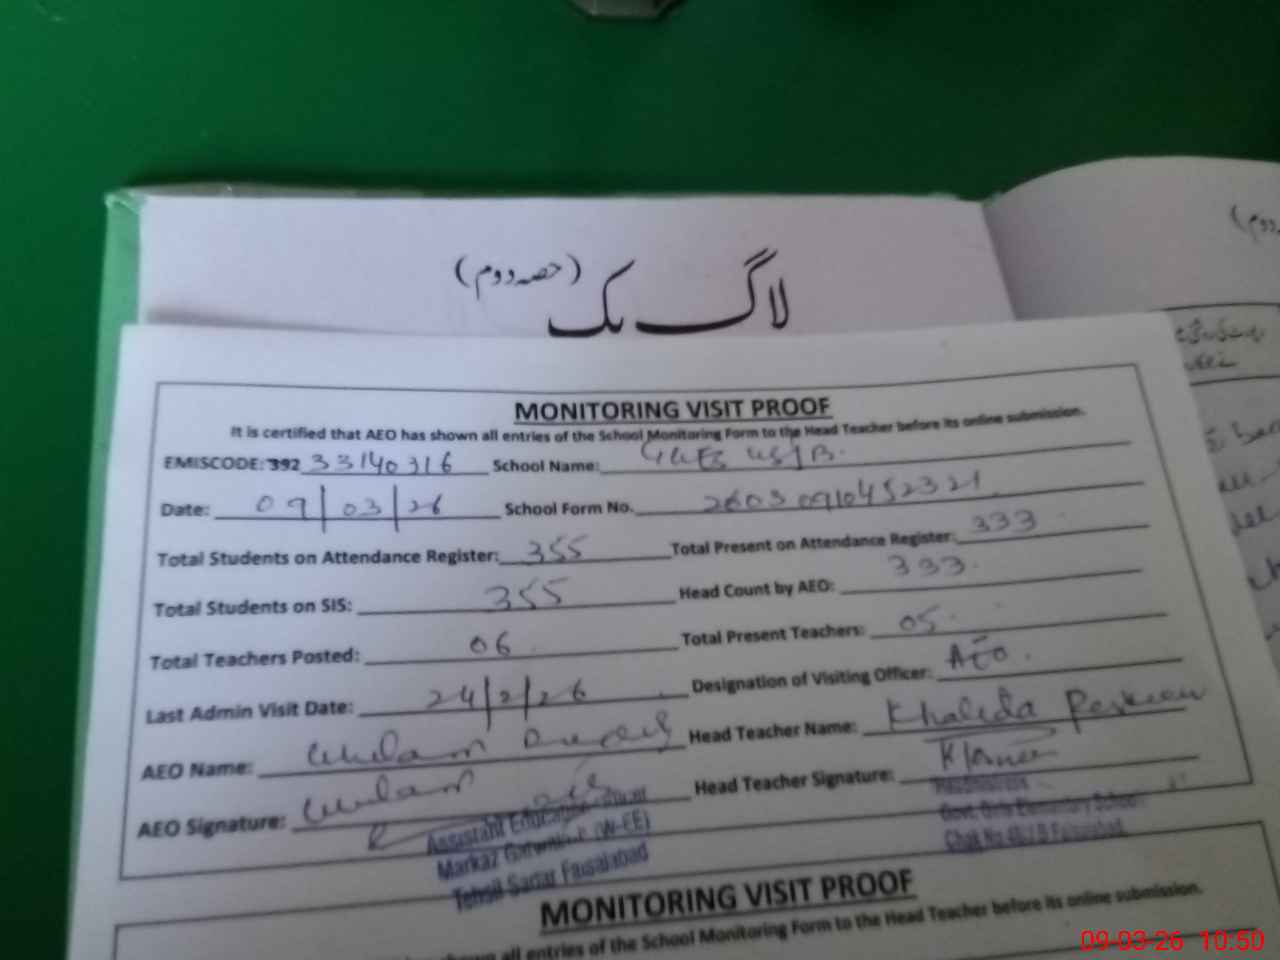 لاگ بک (حصہ دوم)
MONITORING VISIT PROOF
It is certified that AEO has shown all entries of the School Monitoring Form to the Head Teacher before its online submission.
EMISCODE: 392 33140316 School Name: GGES
Date: 09/03/26 School Form No. 26030910452321
Total Students on Attendance Register: 355 Total Present on Attendance Register: 333
Total Students on SIS: 355 Head Count by AEO: 333
Total Teachers Posted: 06 Total Present Teachers: 05
Last Admin Visit Date: 24/2/26 Designation of Visiting Officer: AEO
AEO Name: Head Teacher Name: Khaleda Parveen
AEO Signature: Head Teacher Signature:
Assistant Education
Markaz (W-EE)
Tehsil Sadar Faisalabad
Headmistress
Govt. Girls Elementary School
Chak No Faisalabad
MONITORING VISIT PROOF
shown all entries of the School Monitoring Form to the Head Teacher before its online submission.
09-03-26 10:50